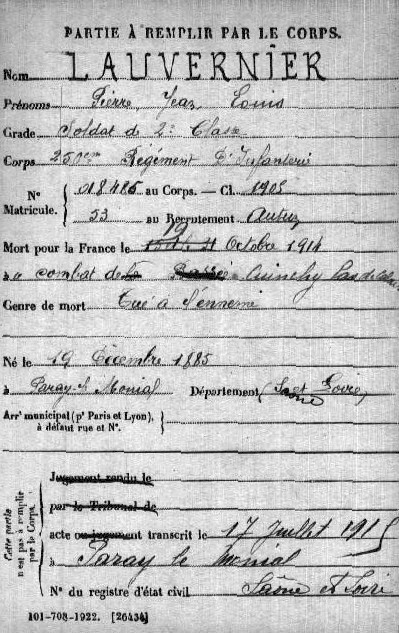 PARTIE À REMPLIR PAR LE CORPS.
Nom LAUVERNIER
Prénoms Pierre, Jean Louis
Grade Soldat de 2e Classe
Corps 250eme Régiment D'Infanterie
N° Matricule. 018485 au Corps. — Cl. 1905
53 au Recrutement Autun
Mort pour la France le 19 Octobre 1914
à combat de Cuinchy Pas de Calais
Genre de mort Tué à l'ennemi
Né le 19 Décembre 1885
à Paray le Monial Département Saône et Loire
Arr' municipal (p' Paris et Lyon),
à défaut rue et N°.
Cette partie n'est pas à remplir par le Corps.
Jugement rendu le
par le Tribunal de
acte ou jugement transcrit le 17 Juillet 1915
à Paray le Monial
N° du registre d'état civil Saône et Loire
101-708-1922. [26434]